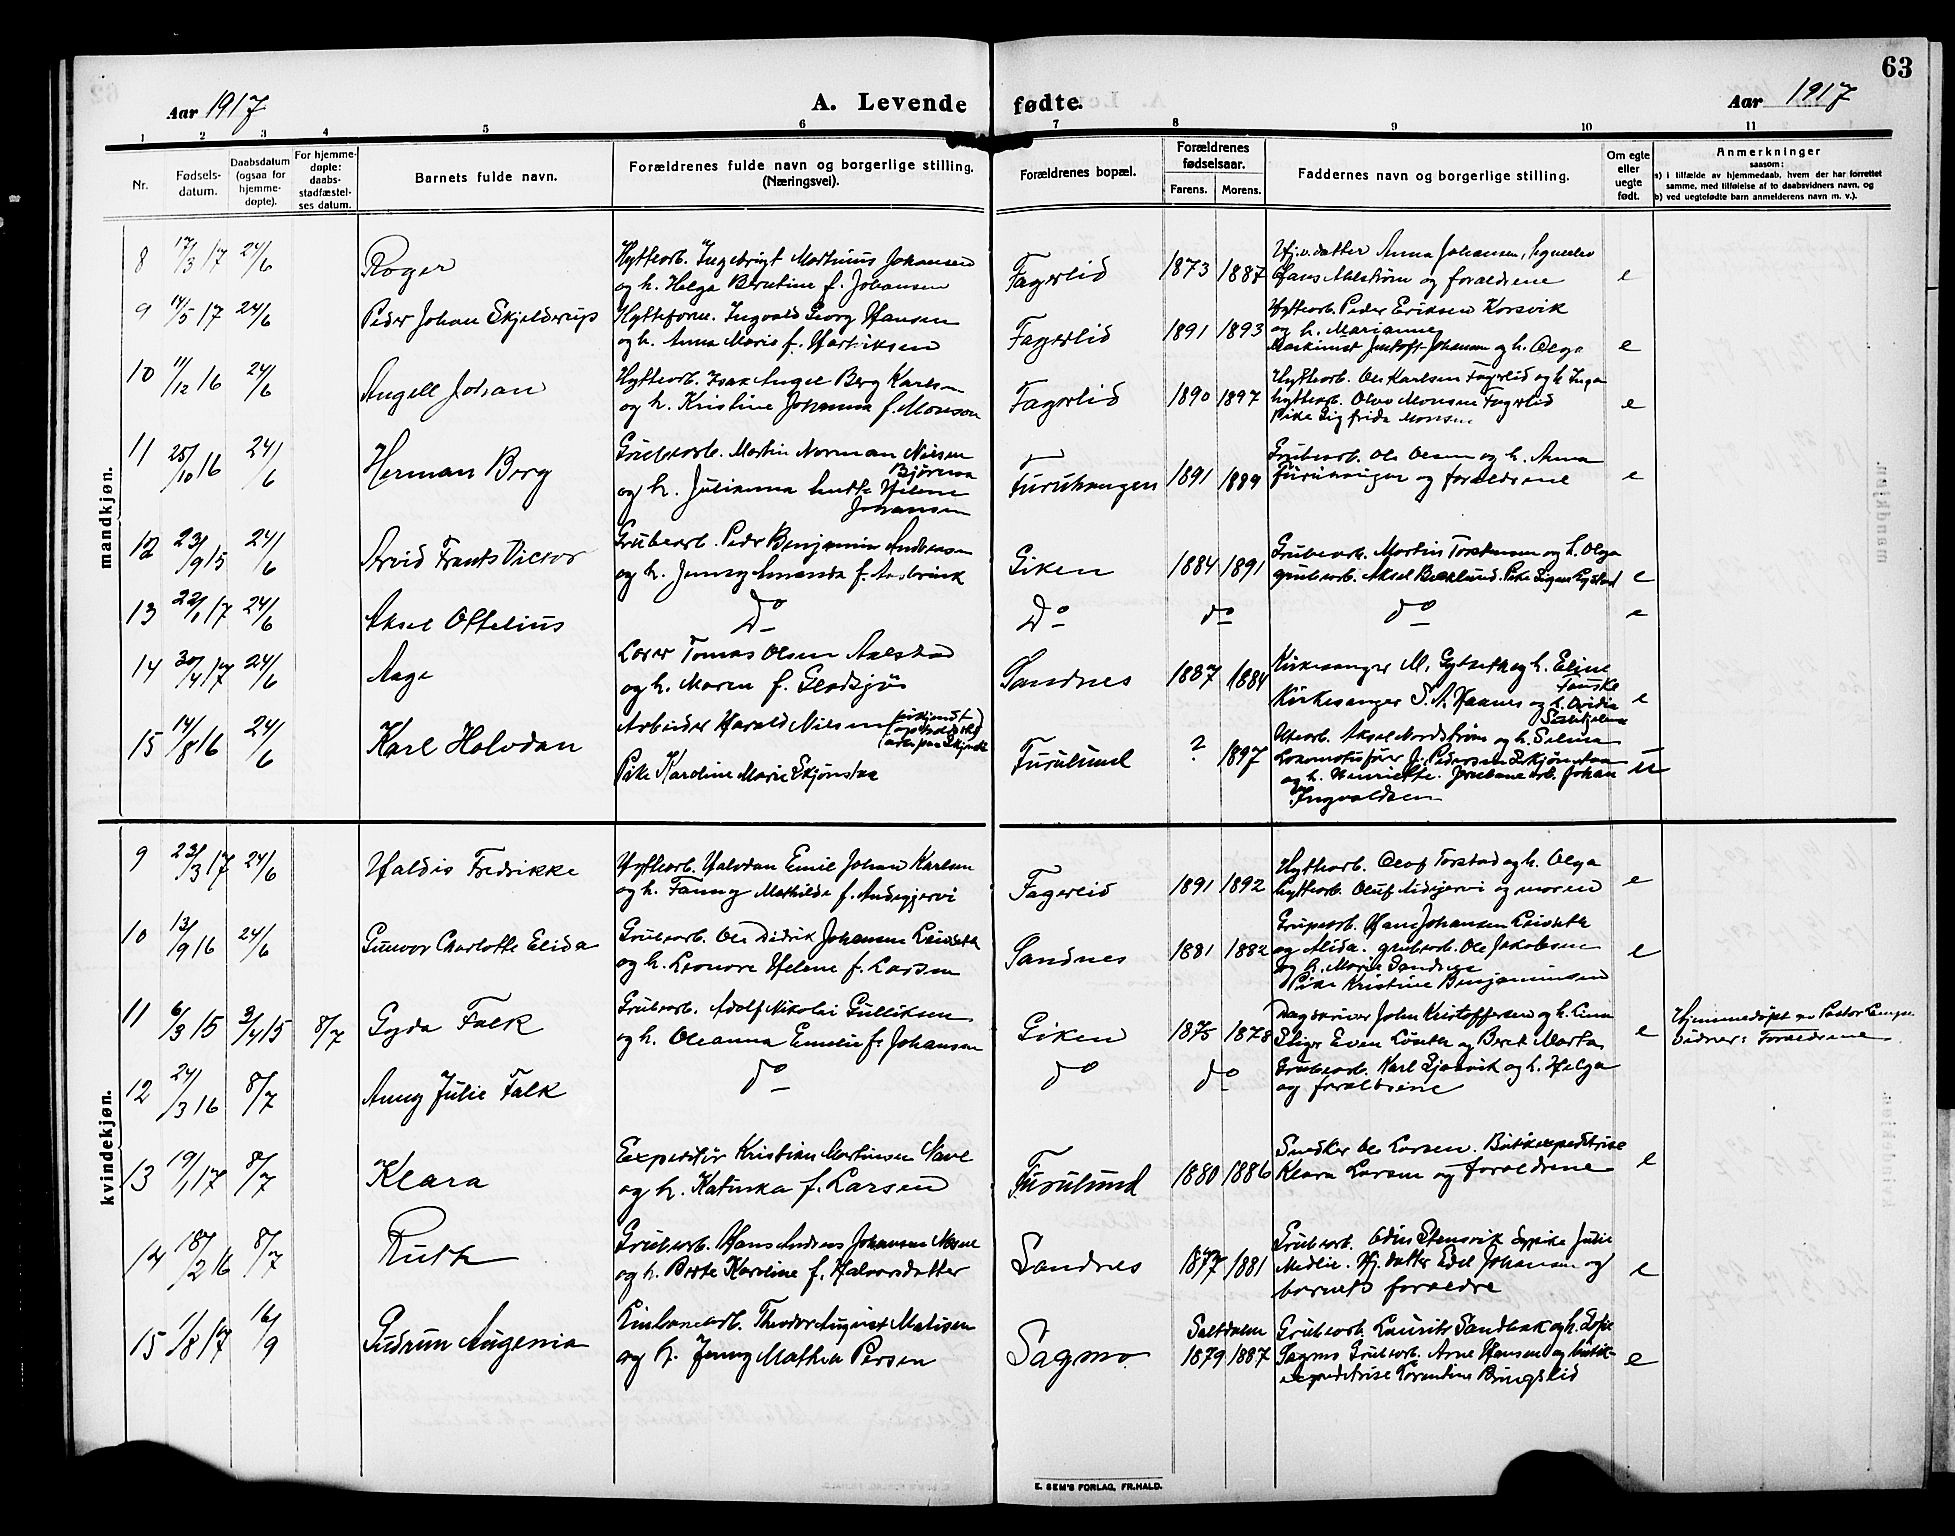 63
Aar 1917
A. Levende fødte.
Aar 1917
1 2 3 4 5 6 7 8 9 10 11
Nr.
Fødsels-
datum.
Daabsdatum
(ogsaa for
hjemme-
døpte).
For hjemme-
døpte:
daabs-
stadfæstel-
ses datum.
Barnets fulde navn.
Forældrenes fulde navn og borgerlige stilling.
(Næringsvei).
Forældrenes bopæl.
Forældrenes
fødselsaar.
Farens. Morens.
Faddernes navn og borgerlige stilling.
Om egte
eller
uegte
født.
Anmerkninger
saasom:
a) i tilfælde av hjemmedaab, hvem der har forrettet
samme, med tilføielse af to daabsvidners navn, og
b) ved uegtefødte barn anmelderens navn m. v.).
mandkjøn.
8 17/3 17 24/6 Roger
Hytteorb. Ingebrigt Martinius Johansen
og h. Helga Berntine f. Johansen
Fagerlid 1873 1887
Hj.v.datter Anna Johansen,
Hans Ahlstrøm og foraldrene e
9 14/5 17 24/6 Peder Johan Skjelderup
Hytteform. Ingvald Georg Hansen
og h. Anna Marie f. Hartviksen
Fagerlid 1891 1893
Hytteorb. Peder Eriksen Korsvik
og h. Marianne
Maskinist Johansen og h. Olga e
10 11/12 16 24/6 Angell Johan
Hytteorb. Isak Angel Berg Karlsen
og h. Kristine Johanna f. Monsen
Fagerlid 1890 1897
Hytteorb. Ole Karlsen Fagerlid og h Inga
hytteorb. Olav Monsen Fagerlid
Pike Sigfrida Monsen e
11 25/10 16 24/6 Herman Borg
Grubeorb. Martin Norman Nilsen
Bjørmo
og h. Julianna Helene
Johansen
Furuhaugen 1891 1889
Grubeorb. Ole Olsen og h. Anna
Furuhaugen og foraldrene e
12 23/9 15 24/6 Arvid Frants Victor
Grubeorb. Peder Benjamin Andersen
og h. Jenny Amanda f.
Giken 1884 1891
Grubeorb. Martin Torstensen og h. Olga
grubeorb. Aksel Beklund. Pike e
13 22/1 17 24/6 Aksel Ottelius
Do Do do do e
14 30/4 17 24/6 Aage
Lærer Tomas Olsen Aalstad
og h. Maren f. Gladsjø
Sandnes 1887 1884
Kirkesanger M. Gylseth og h. Eline
Fauske
Kirkesanger S. A. Haanes og h. Ovidia e
15 14/8 16 24/6 Karl Halvdan
Arbeider Harald Nilsen
Pike Karoline Marie Skjønstaa
Furulund ? 1897
Aksel Nordstrøm og h. Selma
Lokomotivfører J. Pedersen Skjønstaa
og h. Henriette. Jernbanearb. Johan
Ingvaldsen u
kvindekjøn.
9 23/3 17 24/6 Haldis Fredrikke
Hytteorb. Halvdan Emil Johan Karlsen
og h. Fanny Mathilde f. Andsjjervi
Fagerlid 1891 1892
Hytteorb. Olaf Torstad og h. Olga
hytteorb. Oluf Aidijervi og moren e
10 13/9 16 24/6 Gunvor Charlotte Elida
Grubeorb. Ole Didrik Johansen Leivseth
og h. Leonore Helene f. Larsen
Sandnes 1881 1882
Grubeorb. Hans Johansen Leivseth
og Alida. grubeorb. Ole Jakobsen
og h. Marie Sandnes
Pike Kristine Benjaminsen e
11 6/3 15 3/4 15 8/7 Gyda Falk
Grubeorb. Adolf Nikolai Gulliksen
og h. Oleanna Emelie f. Johansen
Giken 1875 1878
Dagskriver John Kristoffersen og h. Lina
Stiger Even Løseth og Beret Marta e
Hjemmedøpt av Pastor
Vidner: Foraldrene
12 24/3 16 8/7 Anny Julie Falk
do do do
Grubeorb. Karl Sjønvik og h. Helga
og foraldrene
13 19/1 17 8/7 Klara
Expeditør Kristian Martinsen Nave
og h. Katinka f. Larsen
Furulund 1880 1886
Snedker Ole Larsen. Butikexpeditrise
Klara Larsen og foraldrene e
14 18/2 16 8/7 Ruth
Grubeorb. Hans Andreas Johansen
og h. Berte Karoline f. Halvorsdatter
Sandnes 1877 1881
Grubeorb. Odin Stensvik Sypike Julie
Medlie. Hj. datter Edel Johansen og
barnets foraldre e
15 1/8 17 16/9 Gudrun Augenia
Linbanearb. Theodor August Matisen
og h. Jenny Mathea Persen
Sagmo Saltdalen
1879 1887
Grubeorb. Laurits Sandbak og h. Sofie
Sagmo Grubeorb. Arne Hansen og butik-
expeditrise Torentine Bringslid e
E. SEM'S FORLAG, FR.HALD.